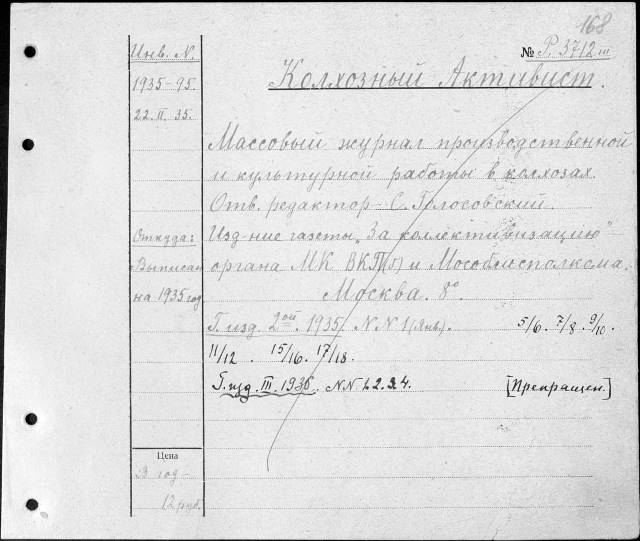 168
Инв. N.
№ P. 3712 III
1935-95.
22. II. 35.
Колхозный Активист.
Массовый журнал производственной
и культурной работы в колхозах.
Отв. редактор - С. Голосовский.
Откуда:
Выписан
на 1935 год
Изд-ние газеты „За коллективизацию"
органа МК ВКП(б) и Мособлисполкома.
Москва. 8°
Г. изд. 2ой 1935. N.N 1 (Янв.). 5/6. 7/8. 9/10.
11/12. 15/16. 17/18.
Г. изд. III. 1936. N.N. 1. 2. 3. 4. [Прекращен.]
Цена
В год -
12 руб.